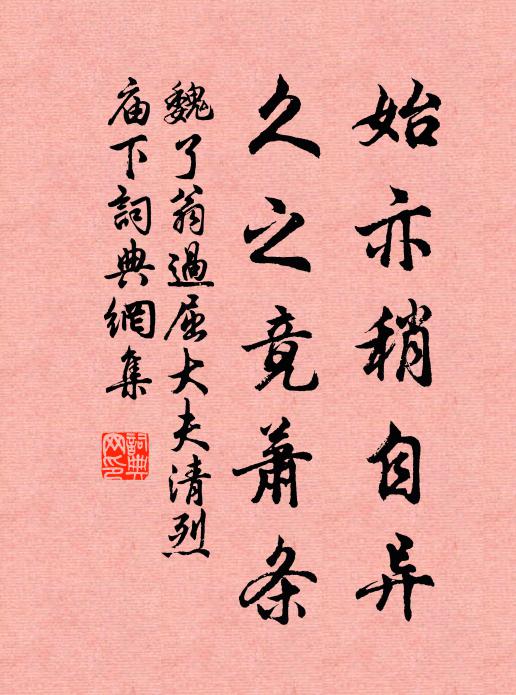 始亦稍自异
久之竟萧条
魏了翁過屈大夫清烈
庙下詞典網集
詞典网印